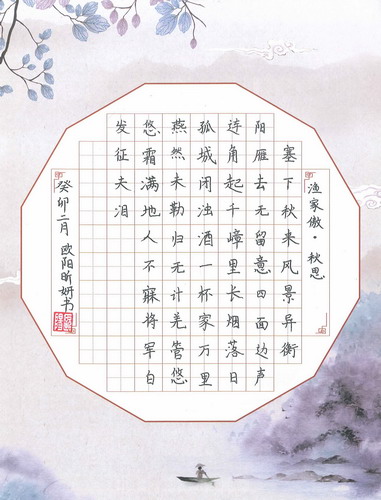 渔家傲·秋思
塞下秋来风景异衡
阳雁去无留意四面边声
连角起千嶂里长烟落日
孤城闭浊酒一杯家万里
燕然未勒归无计羌管悠
悠霜满地人不寐将军白
发征夫泪
癸卯二月 欧阳昕妍书